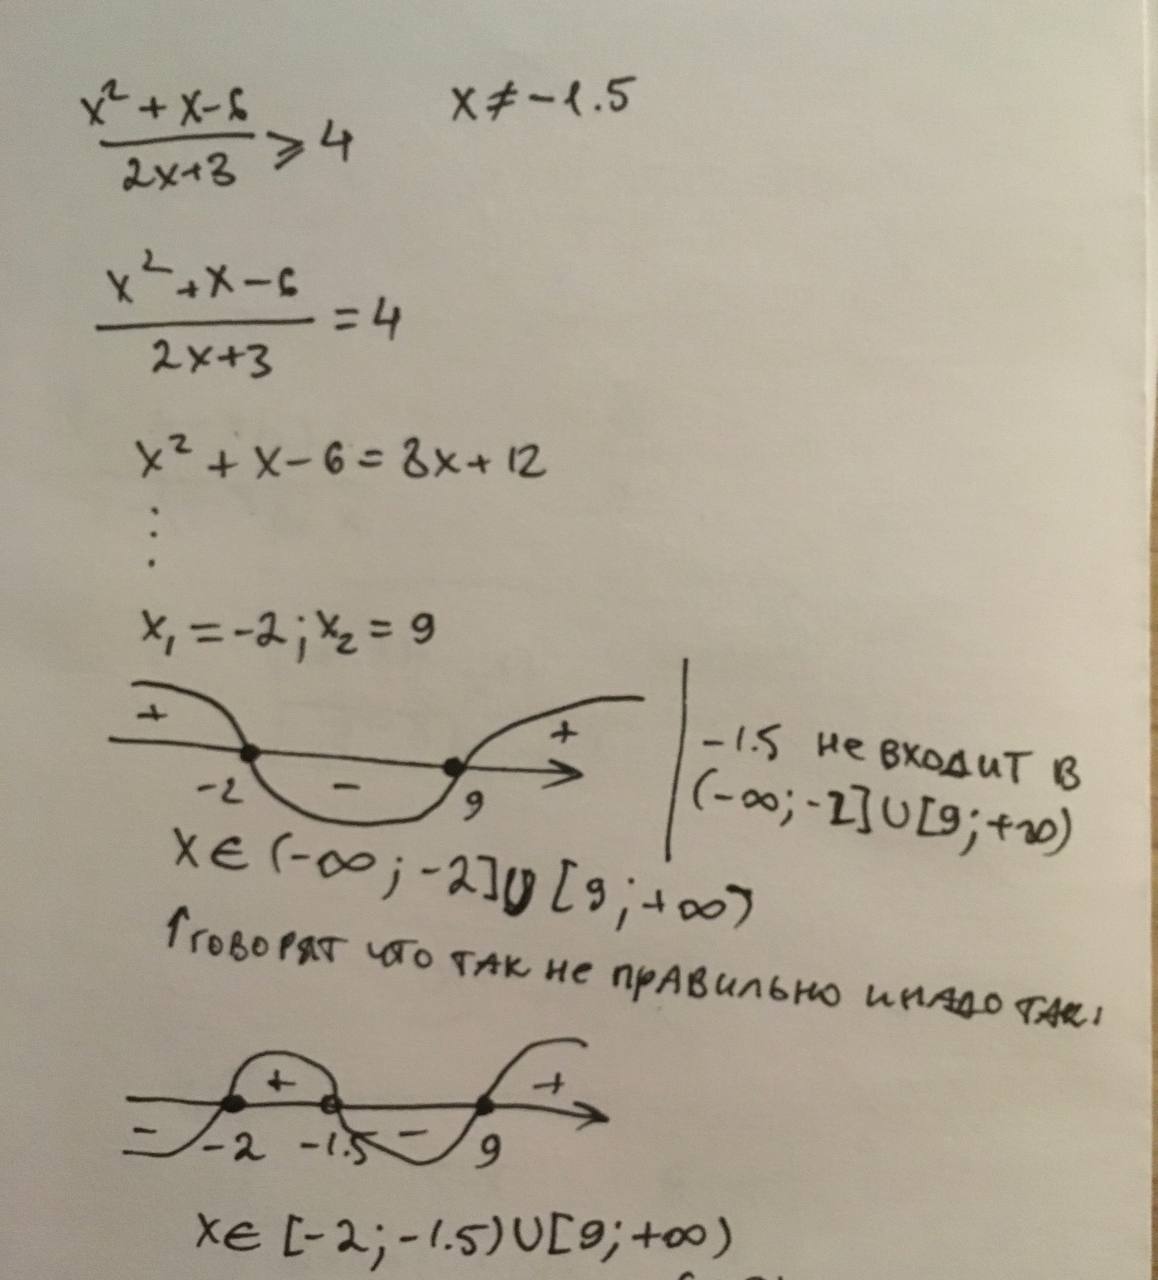 x² + x - 6 / 2x+3 ⩾ 4    x ≠ -1.5
x² + x - 6 / 2x+3 = 4
x² + x - 6 = 8x + 12
⋮
x₁ = -2; x₂ = 9
+ - +
-2 9
-1.5 не входит в
(-∞; -2] ∪ [9; +∞)
x ∈ (-∞; -2] ∪ [9; +∞)
↑ говорят что так не правильно и надо так:
- + - +
-2 -1.5 9
x ∈ [-2; -1.5) ∪ [9; +∞)